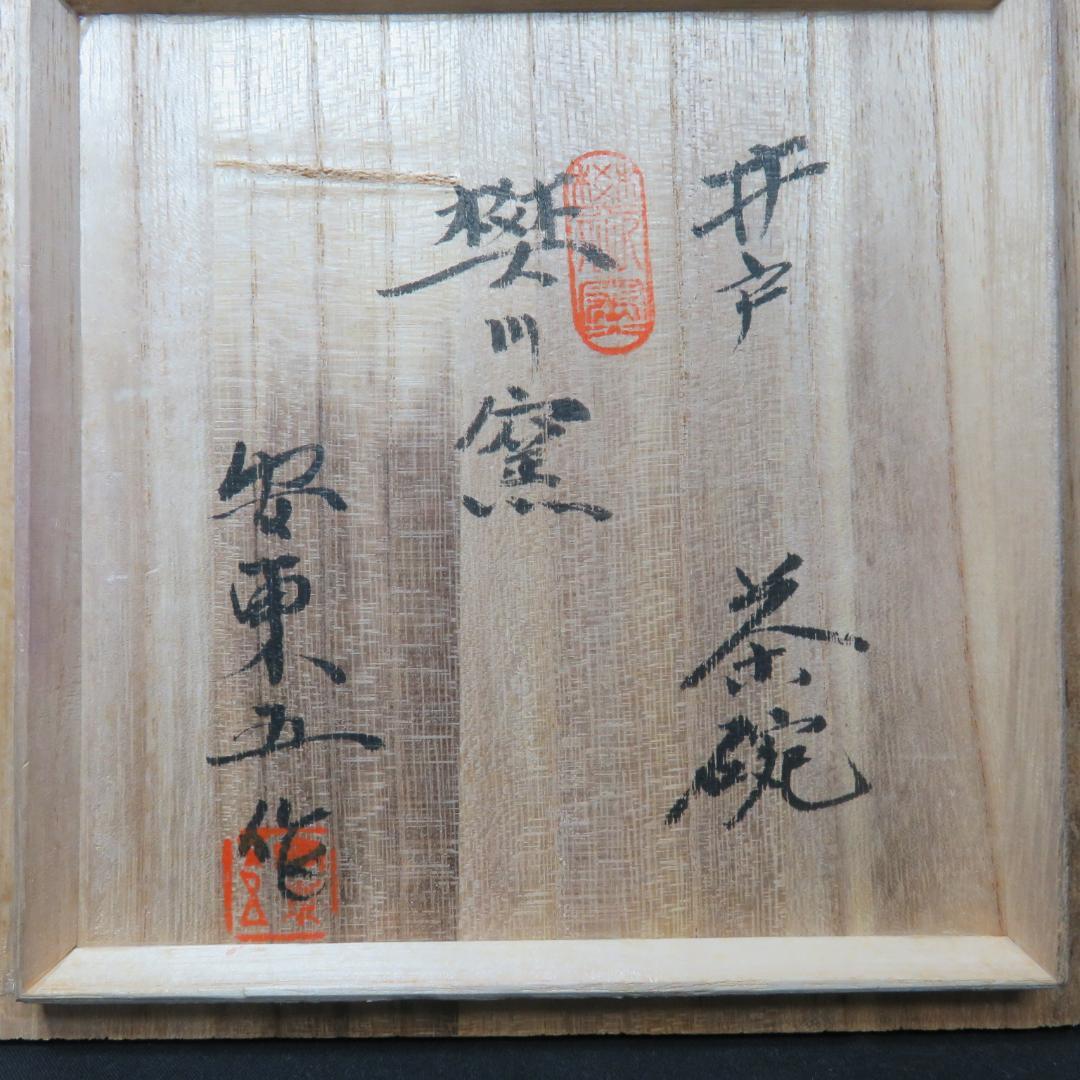 井戸 茶碗
樊川窯
安東五作